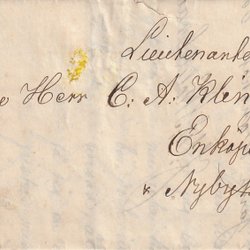 Lieutenante
Herr C. A. Klen
Enkop
& Nyby